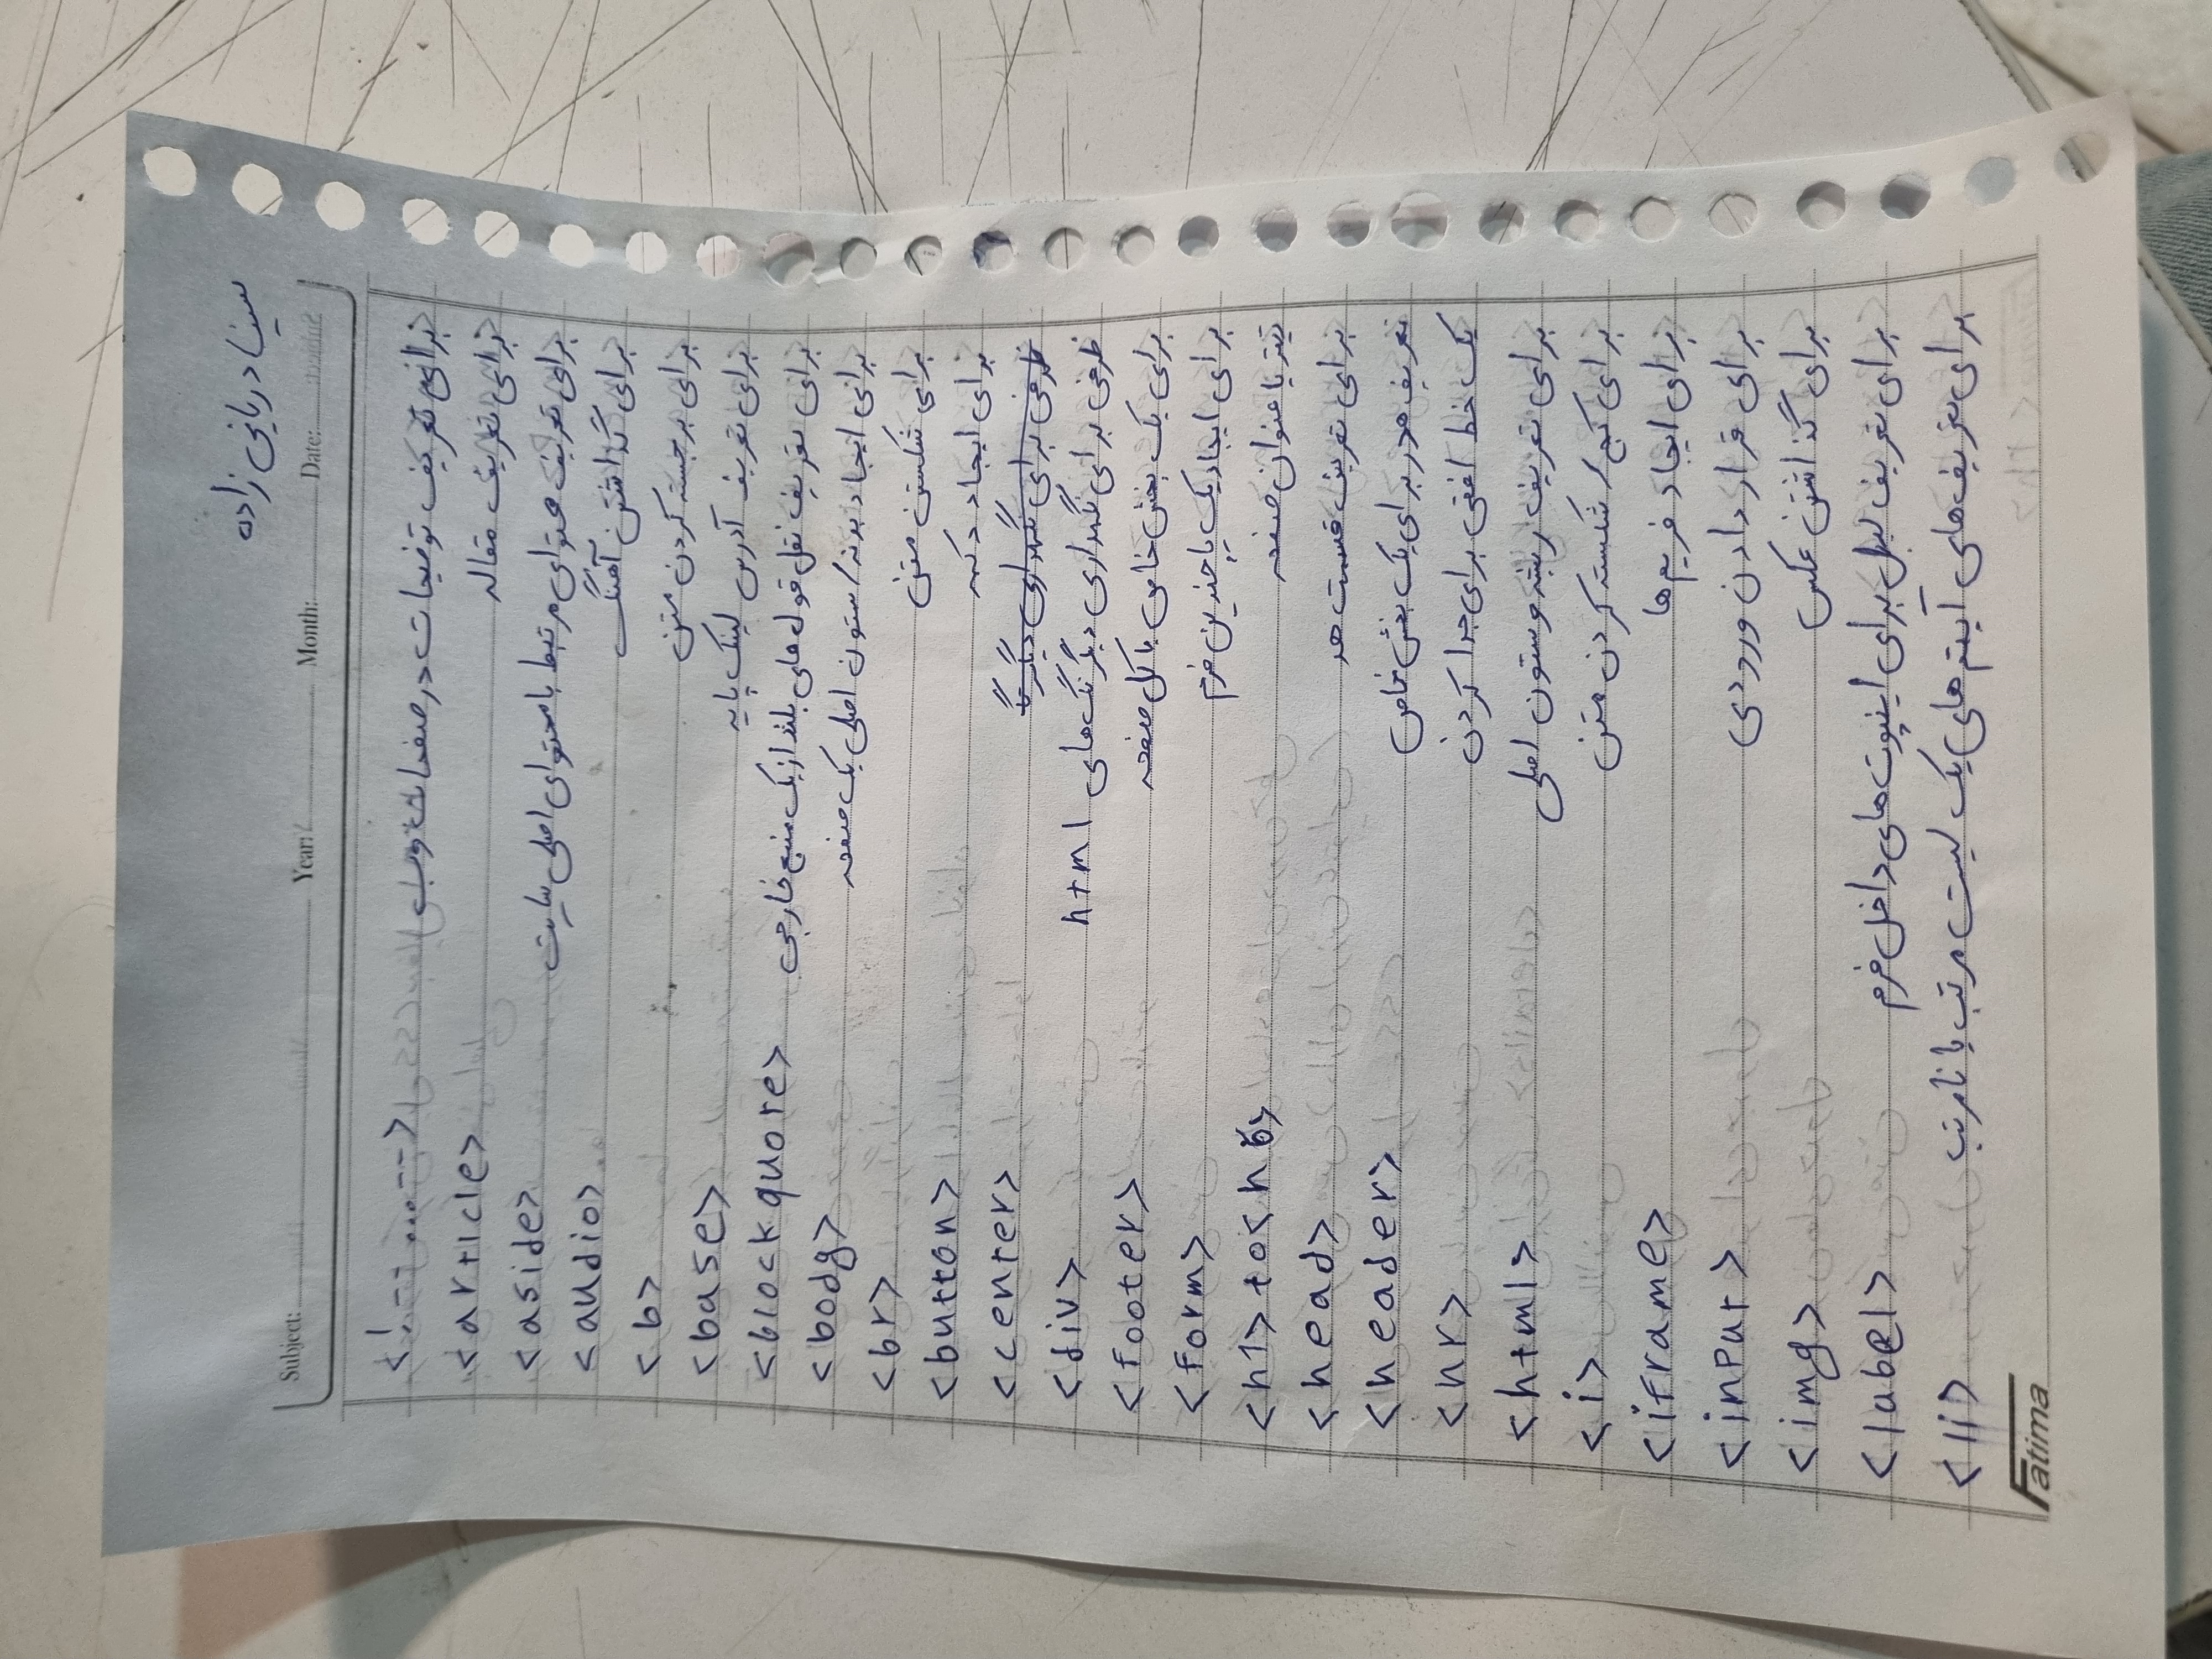 سینا دریایی زاده
Subject: Year: Month: Date:
<!-- ... --> برای تعریف توضیحات در صفحات وب
<article> برای تعریف مقاله
<aside> برای تعریف محتوای مرتبط با محتوای اصلی سایت
<audio> برای گذاشتن آهنگ
<b> برای برجسته کردن متن
<base> برای تعریف آدرس لینک پایه
<blockquote> برای تعریف نقل قول های بلند از یک منبع خارجی
<body> برای ایجاد بدنه/ستون اصلی یک صفحه
<br> برای شکستن متن
<button> برای ایجاد دکمه
<center> ظرفی برای نگهداری دیگر تگ
<div> ظرفی برای نگهداری دیگر تگ های html
<footer> برای یک بخش خاص یا کل صفحه
<form> برای ایجاد یک یا چندین فرم
<h1> to <h6> تیتر یا عنوان صفحه
<head> برای تعریف قسمت هد
<header> تعریف هدر برای یک بخش خاص
<hr> یک خط افقی برای جدا کردن
<html> برای تعریف ریشه و ستون اصلی
<i> برای کج/شکسته کردن متن
<iframe> برای ایجاد فریم ها
<input> برای قرار دادن ورودی
<img> برای گذاشتن عکس
<label> برای تعریف لیبل برای اینپوت های داخل فرم
<li> برای تعریف های آیتم های یک لیست مرتب یا نامرتب
Fatima